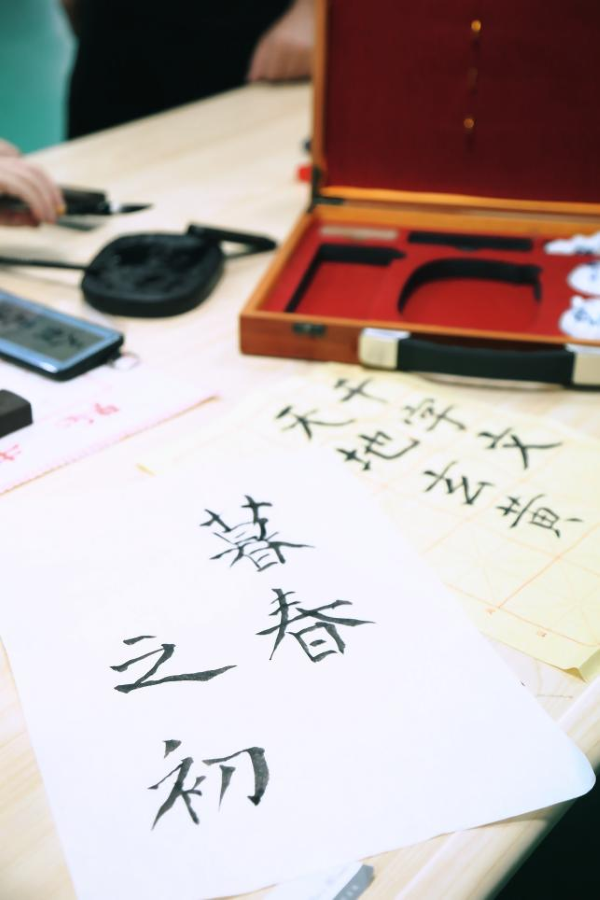 千字文
天地玄黄
暮春
之初